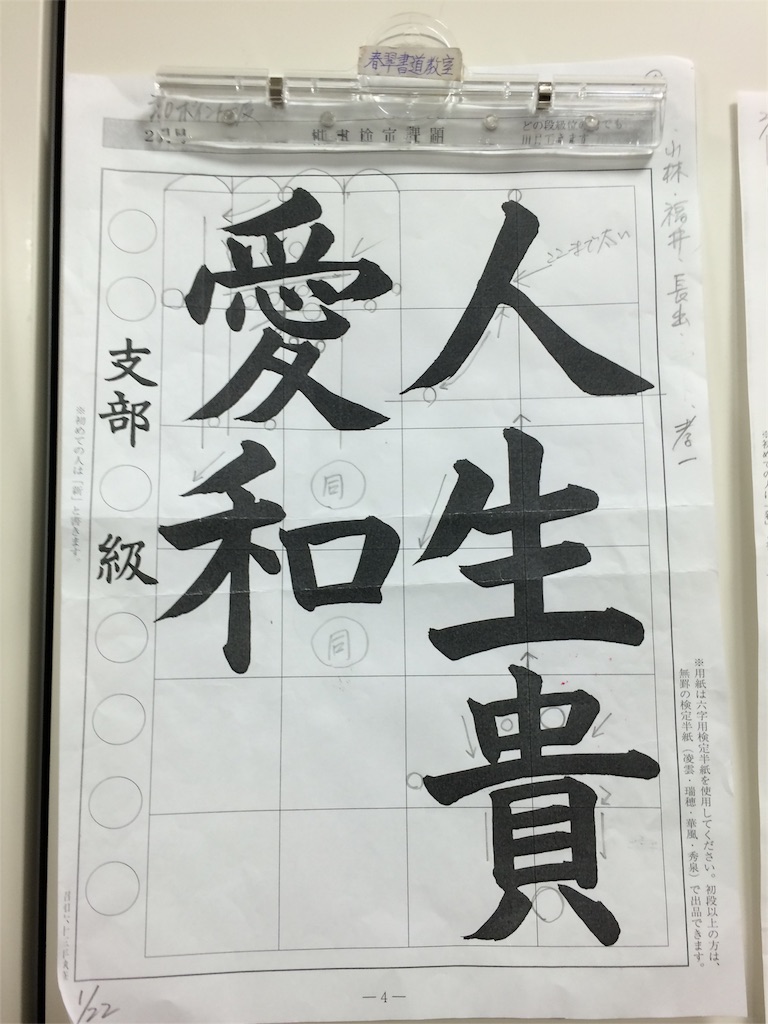 春翠書道教室
2月号
どの段級位
小林・福井・長出・
孝一
人生貴
愛和
ここまで太い
同
同
支部
級
※初めての人は「新」と書きます。
※用紙は六字用検定半紙を使用してください。初段以上の方は、
無罫の検定半紙（凌雲・瑞穂・華風・秀泉）で出品できます。
—4—
1/22